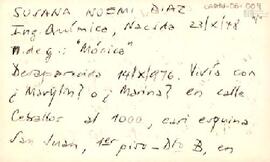 SUSANA NOEMI DIAZ
Ing. Químico, Nacida 23/X/48
n. de g.: "Mónica"
Desaparecida 14/X/976. Vivía con
¿Marylin? o ¿Marina? en calle
Ceballos al 1000, casi esquina
San Juan, 1er piso - Dto B, en